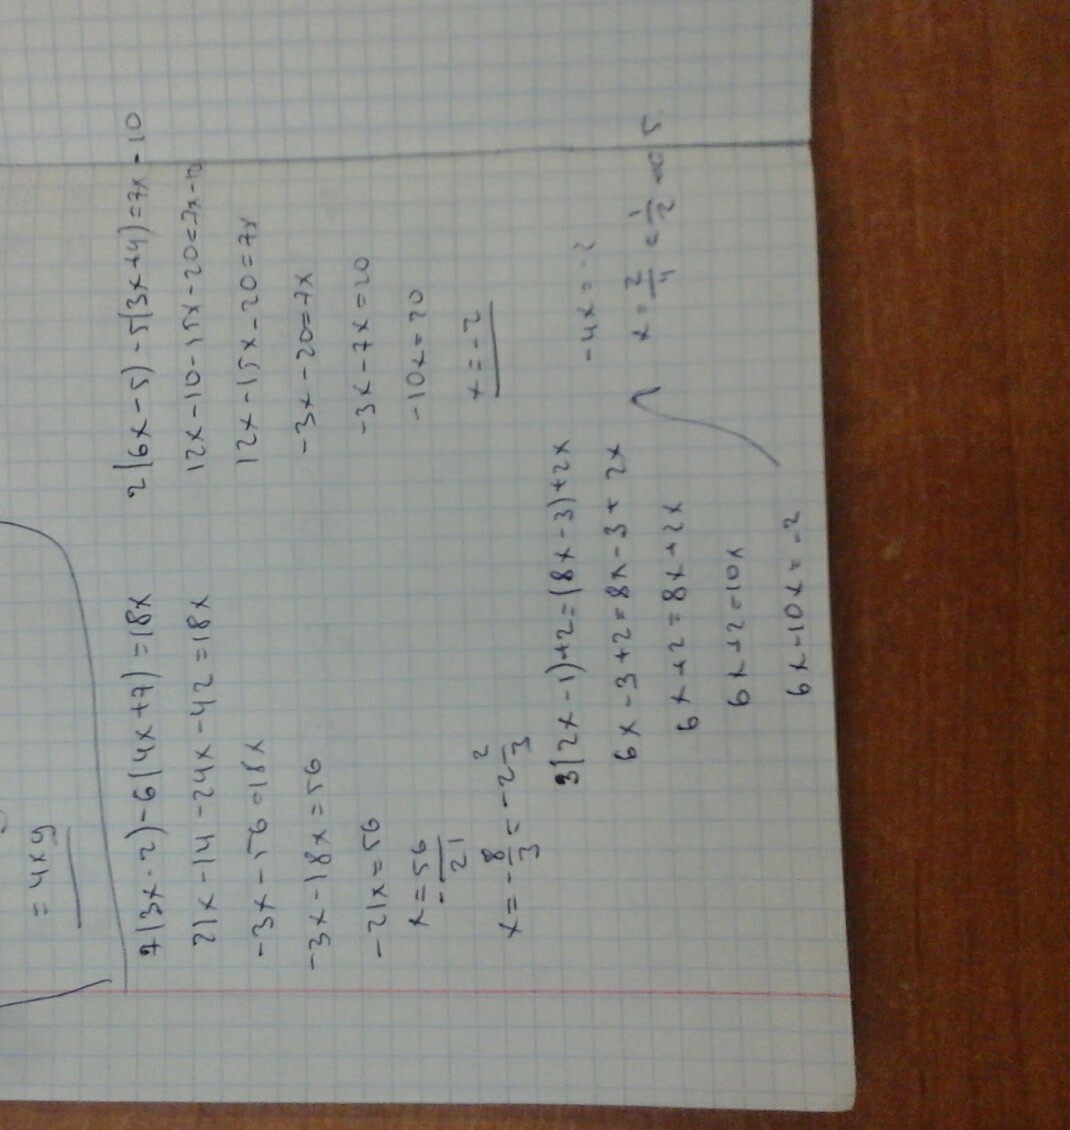 = 4xy
7(3x-2)-6(4x+7)=18x
21x-14-24x-42=18x
-3x-56=18x
-3x-18x=56
-21x=56
x=-56/21
x=-8/3=-2 2/3
2(6x-5)-5(3x+4)=7x-10
12x-10-15x-20=7x-10
12x-15x-20=7x
-3x-20=7x
-3x-7x=20
-10x=20
x=-2
3(2x-1)+2=(8x-3)+2x
6x-3+2=8x-3+2x
6x+2=8x+2x
6x+2=10x
6x-10x=-2
-4x=-2
x=2/4=1/2=0.5